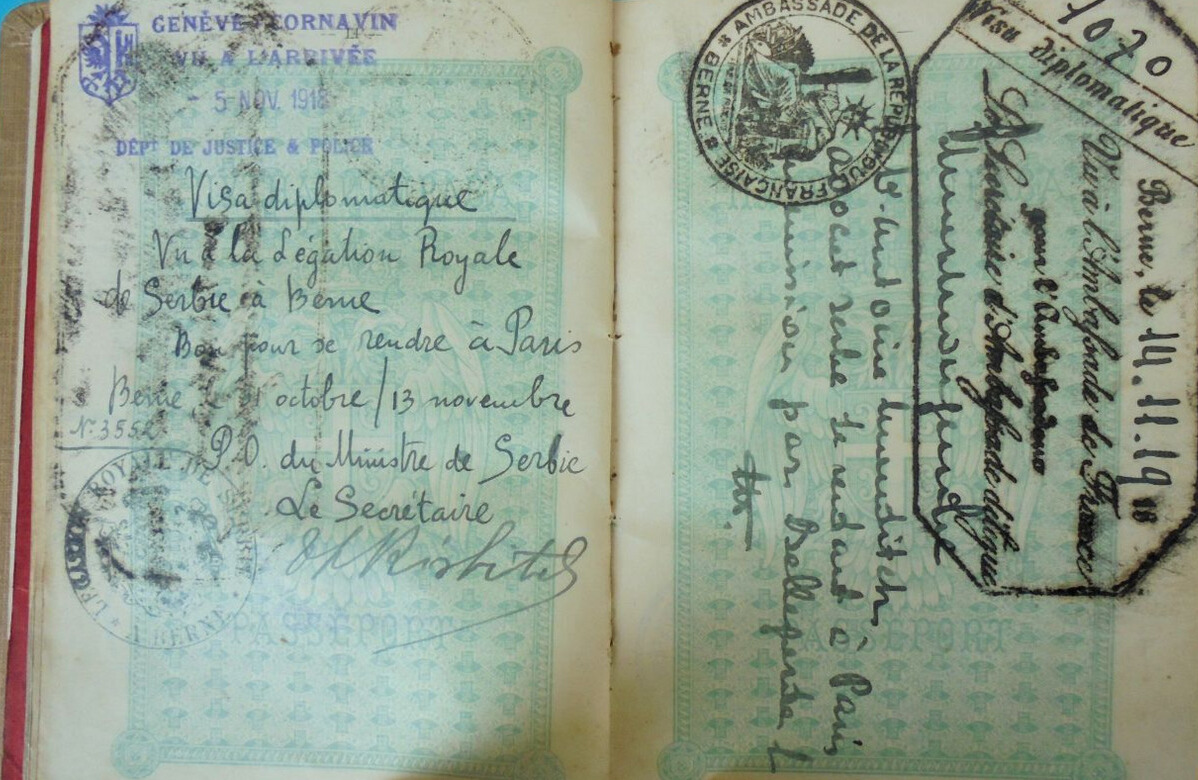 GENÈVE - CORNAVIN
VU A L'ARRIVÉE
- 5 NOV. 1918
DÉPT DE JUSTICE & POLICE
Visa diplomatique
Vu à la Légation Royale
de Serbie à Berne
Bon pour se rendre à Paris
Berne, le 31 octobre/13 novembre
No. 3552
P.O. du Ministre de Serbie
Le Secrétaire
LEGATION ROYALE DE SERBIE
BERNE
PASSEPORT
AMBASSADE DE LA RÉPUBLIQUE FRANÇAISE
BERNE
1070
Visa diplomatique
Berne, le 14.11.1918
Vu à l'Ambassade de France
pour l'Ambassadeur
Le Secrétaire d'Ambassade délégué
M. Antoine
avocat serbe se rendant à Paris
en mission par Bellegarde
PASSEPORT